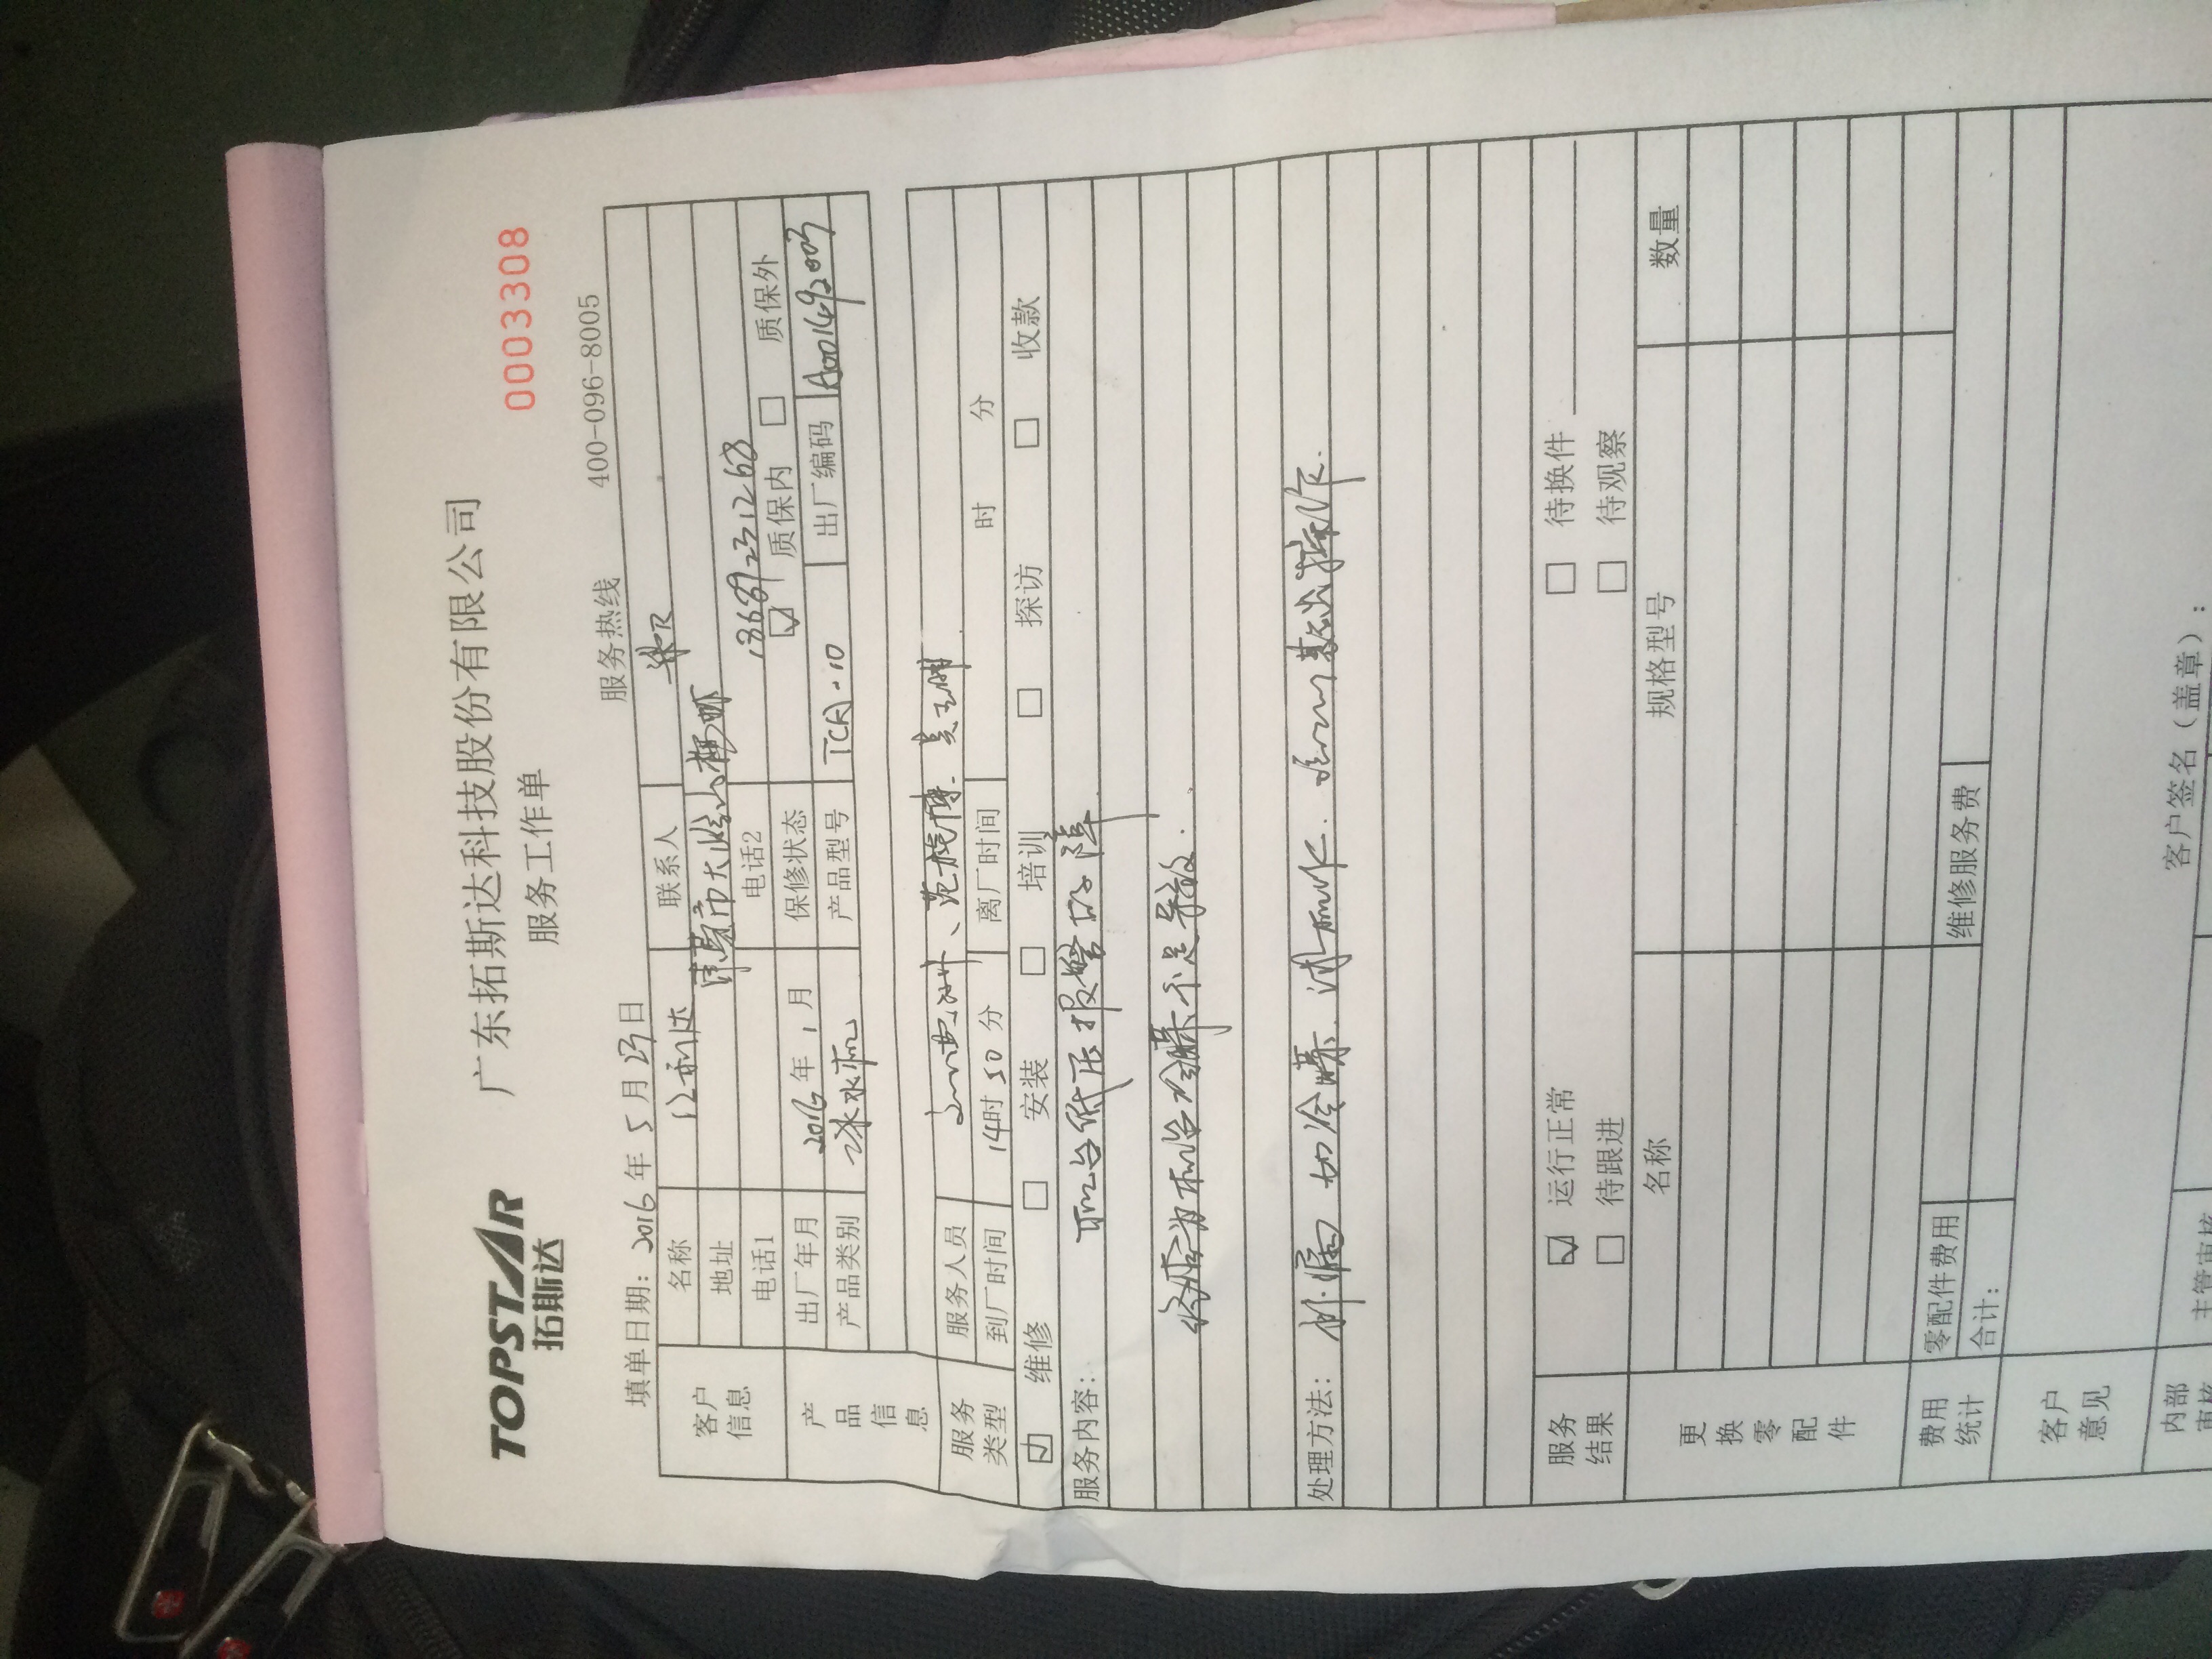 TOPSTAR
拓斯达
广东拓斯达科技股份有限公司
服务工作单
0003308
填单日期：2016年5月23日 服务热线 400-096-8005
客户信息 名称 联系人
地址 市大
电话1 电话2 18689231268
产品信息 出厂年月 2016年1月 保修状态 ☑ 质保内 □ 质保外
产品类别 冰水机 产品型号 TCA-10 出厂编码 A001492003
服务人员
到厂时间 14时50分 离厂时间 时 分
服务类型 ☑ 维修 □ 安装 □ 培训 □ 探访 □ 收款
服务内容： 机台低压报警故障
经检为机台冷媒不足导致.
处理方法： 补漏 加冷媒.
服务结果 ☑ 运行正常 □ 待换件
□ 待跟进 □ 待观察
更换零配件 名称 规格型号 数量
费用统计 零配件费用 维修服务费
合计：
客户意见
客户签名（盖章）：
内部审核 主管审核